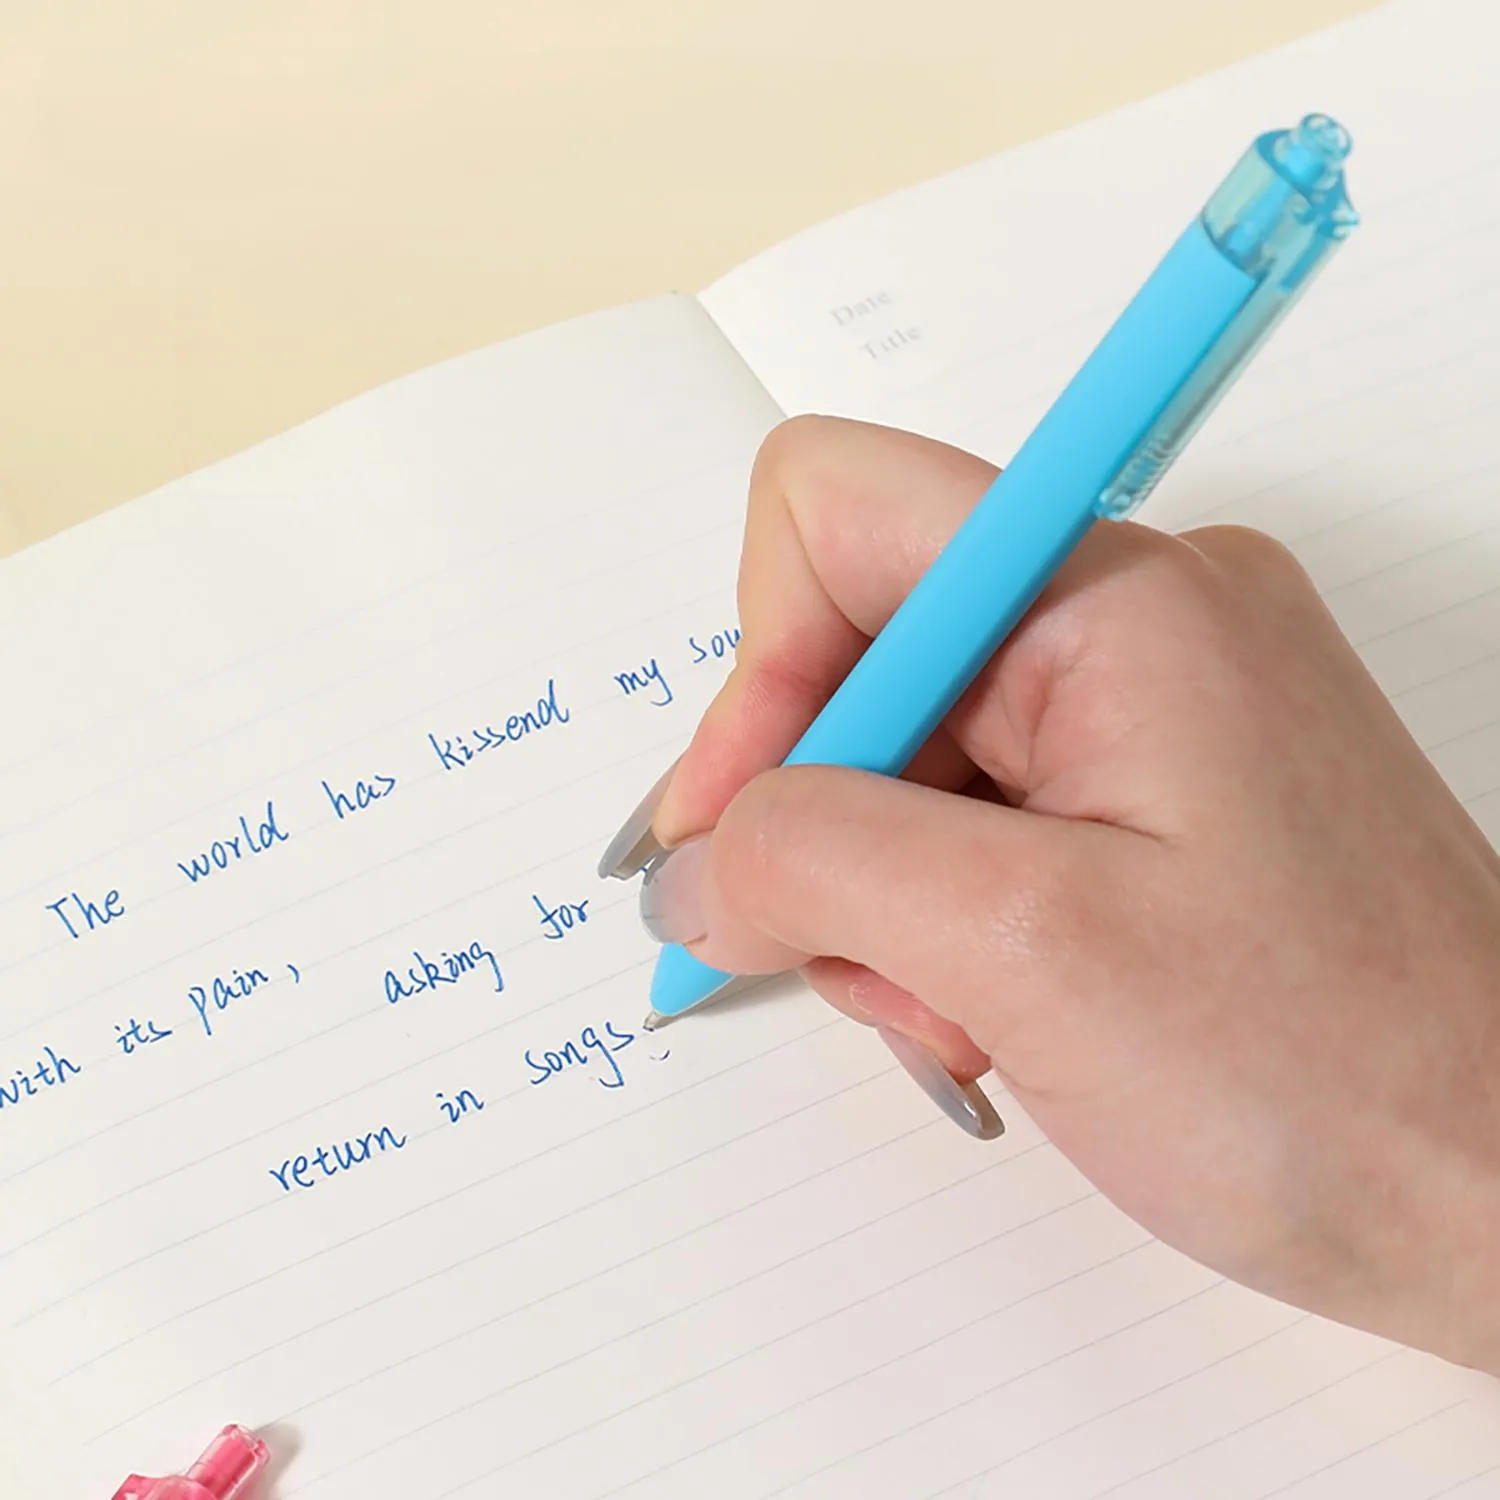 Date
Title
The world has kissend my sou
with its pain, asking for
return in songs.